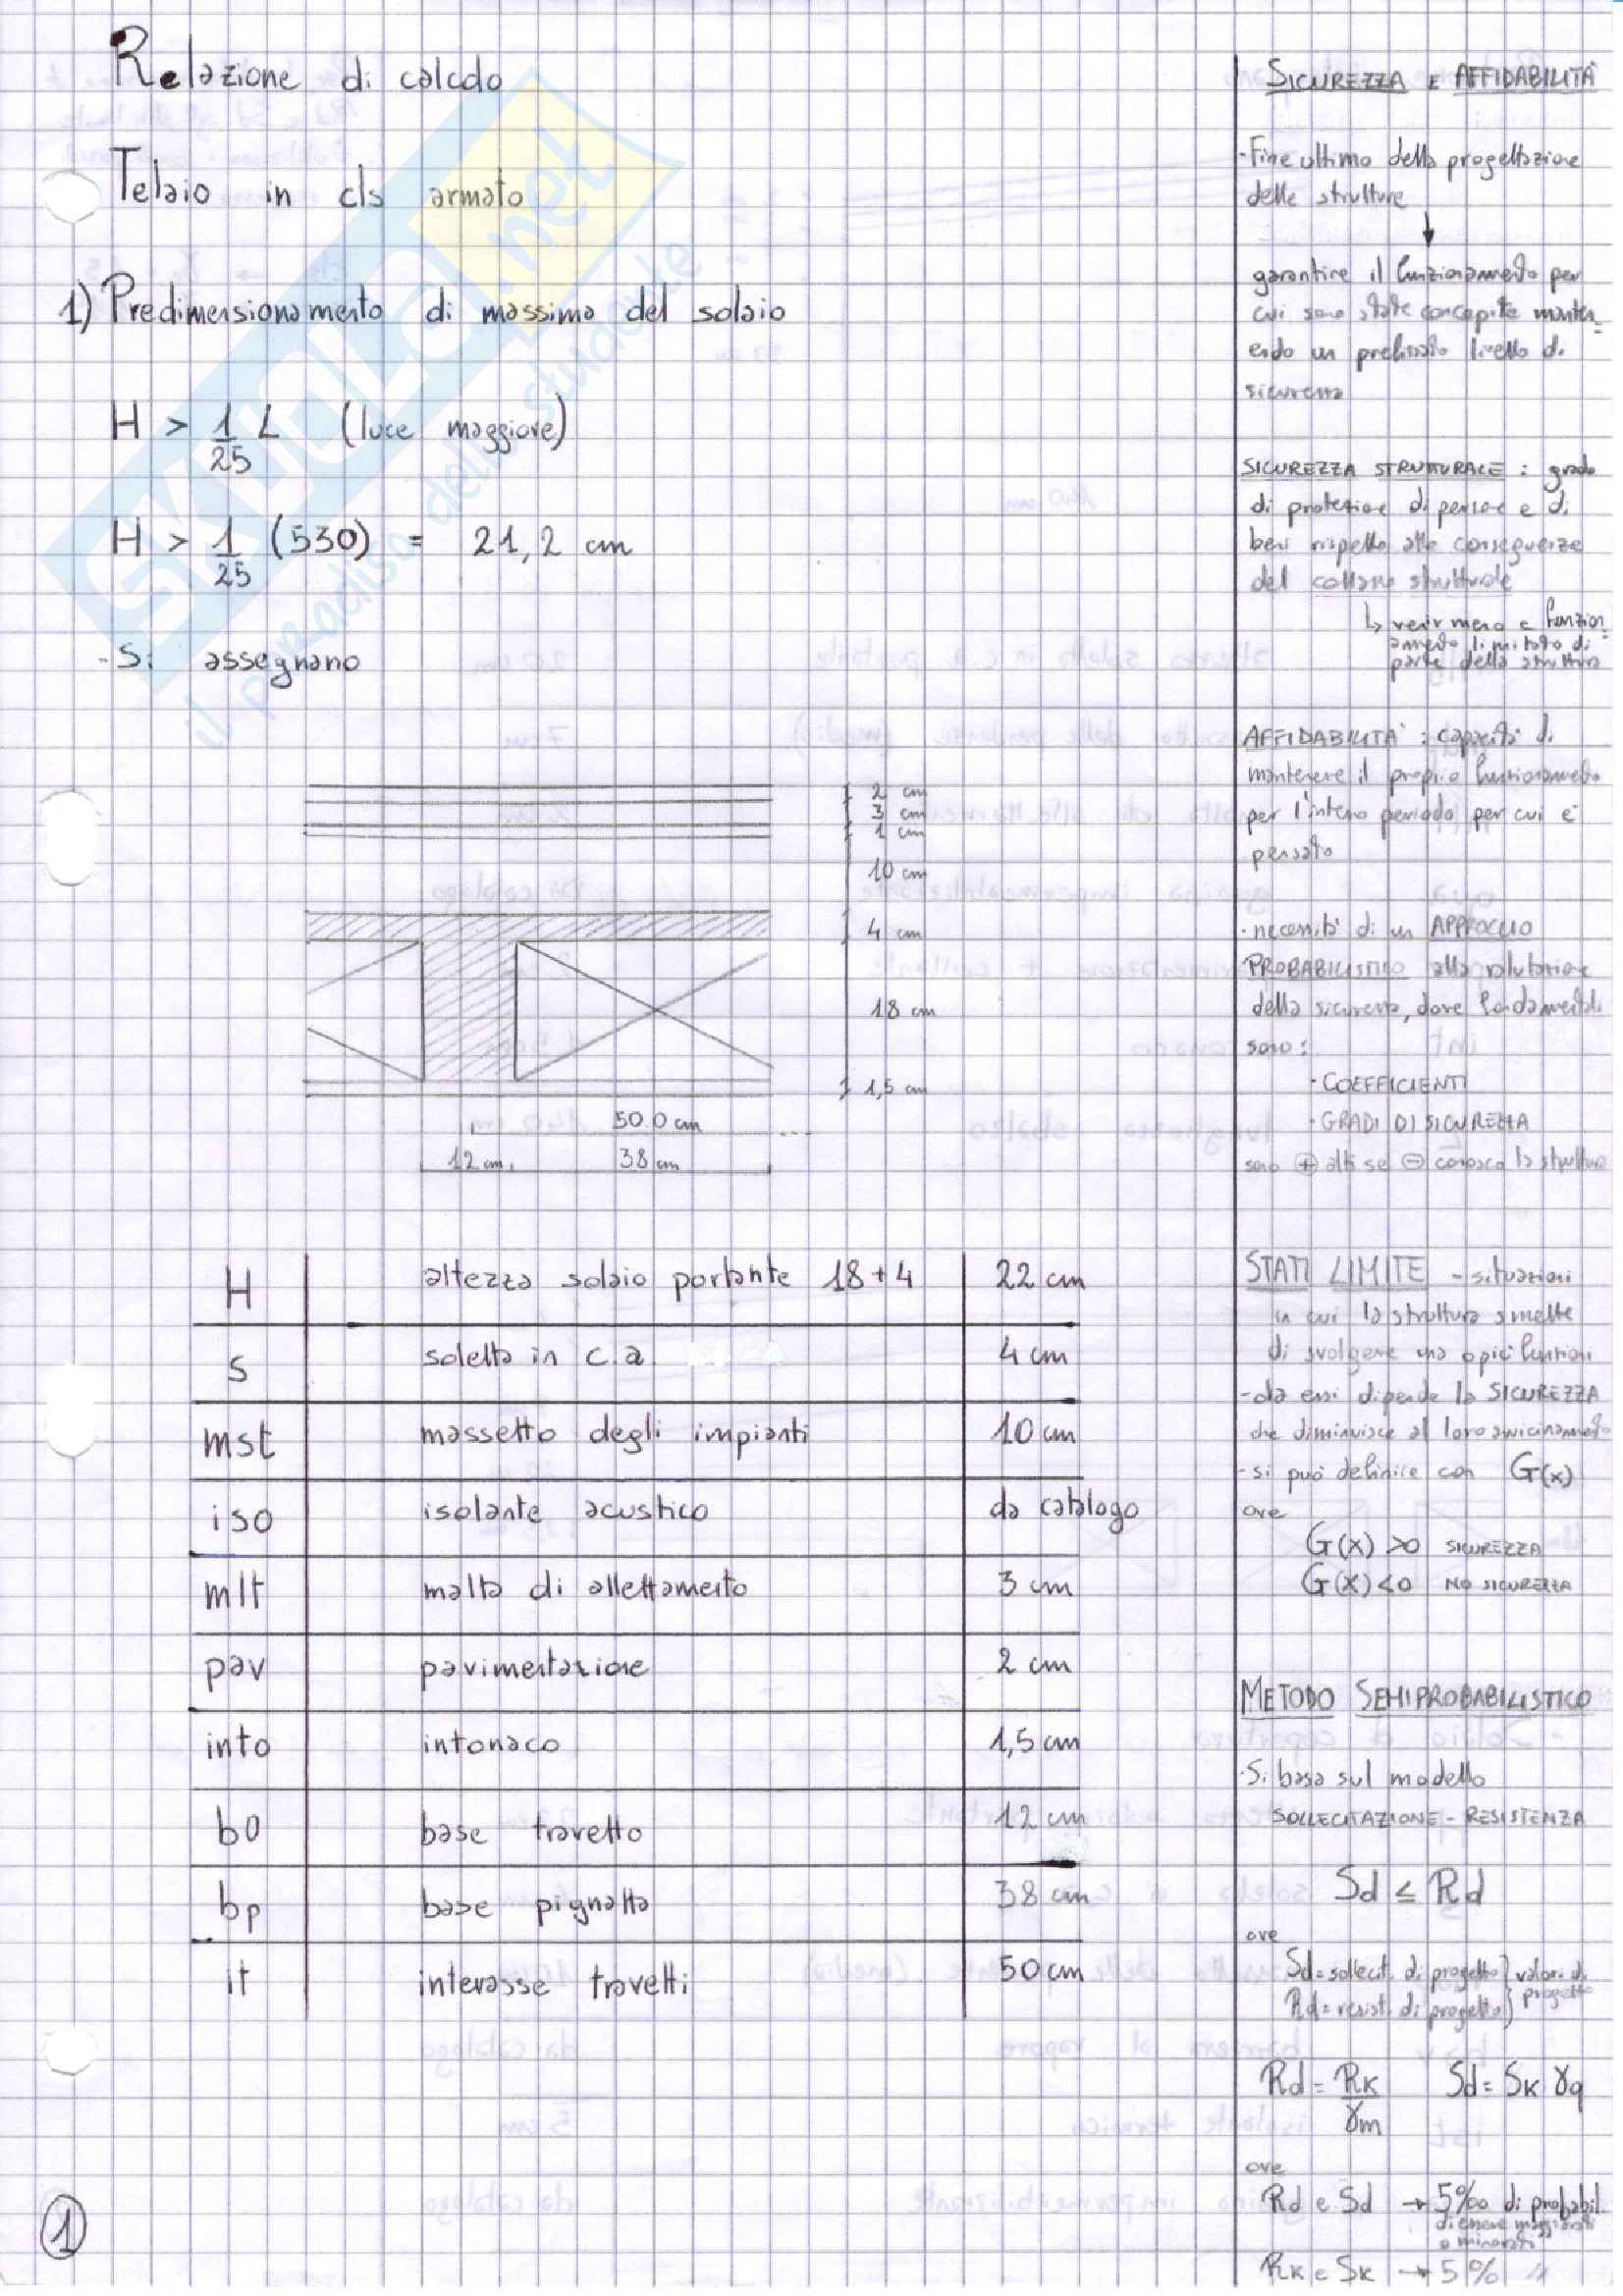 Relazione di calcolo
Telaio in cls armato
1) Predimensionamento di massima del solaio
H > 1/25 L (luce maggiore)
H > 1/25 (530) = 21,2 cm
- Si assegnano
2 cm
3 cm
1 cm
10 cm
4 cm
18 cm
1,5 cm
50.0 cm
12 cm 38 cm
H altezza solaio portante 18+4 22 cm
s soletta in c.a 4 cm
mst massetto degli impianti 10 cm
iso isolante acustico da catalogo
mlt malta di allettamento 3 cm
pav pavimentazione 2 cm
into intonaco 1,5 cm
b0 base travetto 12 cm
bp base pignatta 38 cm
it interasse travetti 50 cm
1
SICUREZZA E AFFIDABILITÀ
· Fine ultimo della progettazione
delle strutture
↓
garantire il funzionamento per
cui sono state concepite manten-
endo un prefissato livello di
sicurezza
SICUREZZA STRUTTURALE : grado
di protezione di persone e di
beni rispetto alle conseguenze
del collasso strutturale
↳ venir meno e funzion-
amento limitato di
parte della struttura
AFFIDABILITÀ : capacità di
mantenere il proprio funzionamento
per l'intero periodo per cui è
pensato
· necessità di un APPROCCIO
PROBABILISTICO alla valutazione
della sicurezza, dove fondamentali
sono :
· COEFFICIENTI
· GRADI DI SICUREZZA
sono ⊕ alti se ⊖ conosco la struttura
STATI LIMITE - situazioni
in cui la struttura smette
di svolgere una o più funzioni
- da essi dipende la SICUREZZA
che diminuisce al loro avvicinamento
- si può definire con G(x)
ove
G(x) >0 SICUREZZA
G(x) <0 NO SICUREZZA
METODO SEMIPROBABILISTICO
· Si basa sul modello
SOLLECITAZIONE - RESISTENZA
Sd ≤ Rd
ove
Sd = sollecit. di progetto } valori di
Rd = resist. di progetto } progetto
Rd = Rk/γm Sd = Sk γq
ove
Rd e Sd → 5‰ di probabil.
di essere maggiorati
o minorati
Rk e Sk → 5% "
SKUOLA.net
il paradiso dello studente